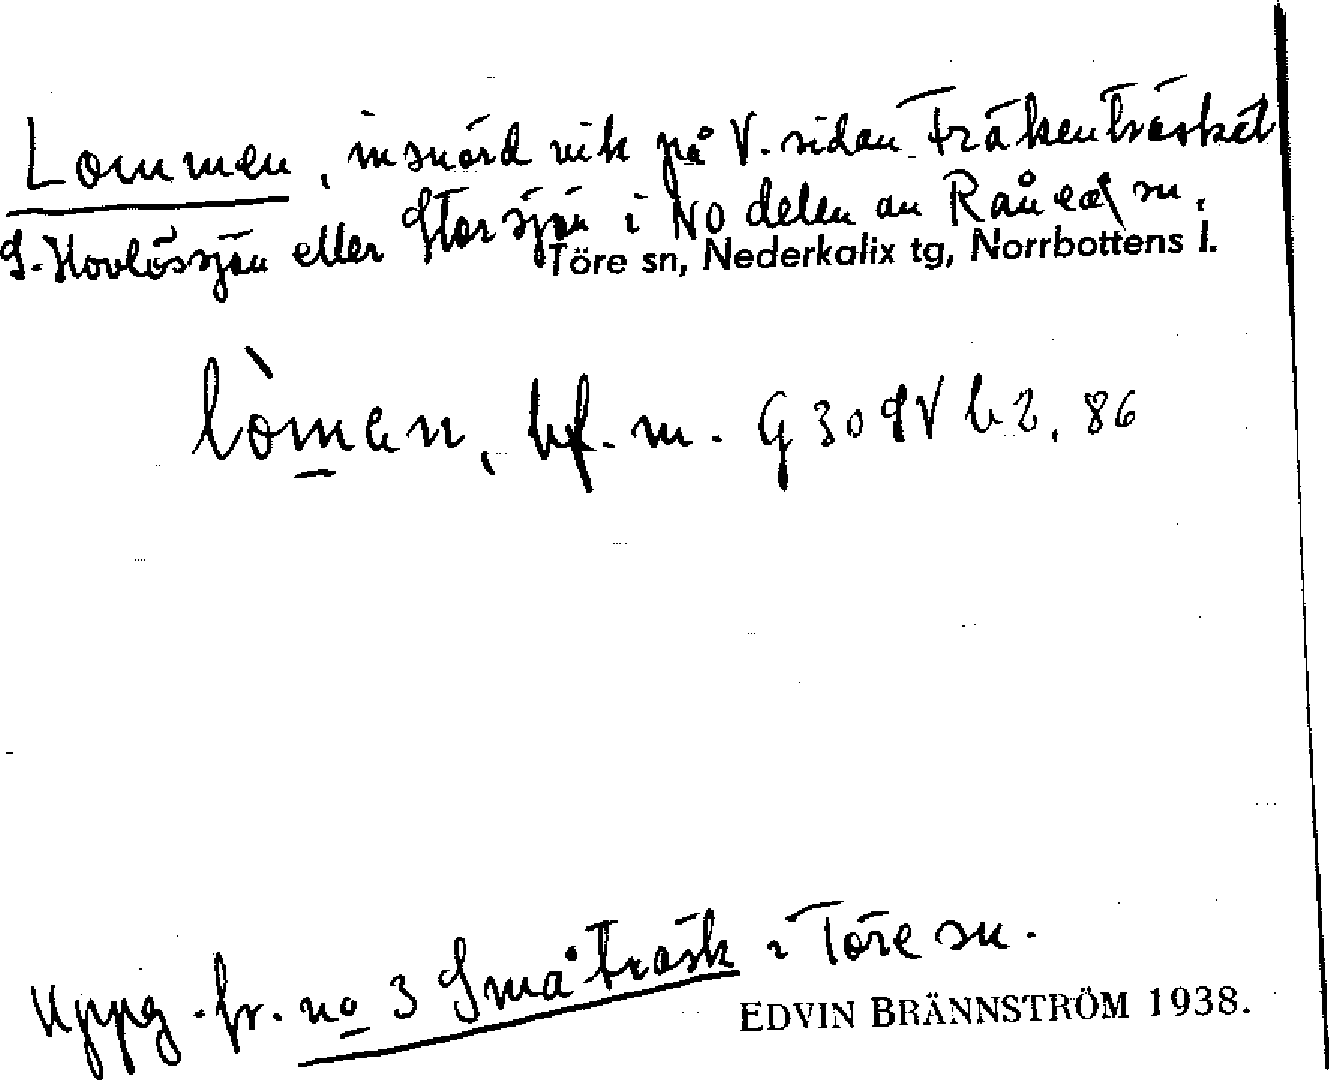 Lommen, insnörd vik på V. sidan Fräkenträsket
S. Hovlössjön eller Storsjön i NO delen av Råneå sn.
Töre sn, Nederkalix tg, Norrbottens l.
lòmen, bf. m. G 30 SV b 2, 86
Uppg. fr. no 3 Småträsk i Töre sn.
EDVIN BRÄNNSTRÖM 1938.